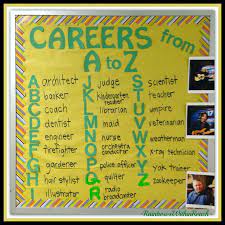 CAREERS from
A to Z
A architect
B banker
C coach
D dentist
E engineer
F firefighter
G gardener
H hair stylist
I illustrator
J judge
K kindergarten
teacher
L librarian
M maid
N nurse
O orchestra
conductor
P police officer
Q quilter
R radio
broadcaster
S scientist
T teacher
U umpire
V veterinarian
W weatherman
X x-ray technician
Y yak trainer
Z zookeeper
RainbowsWithinReach